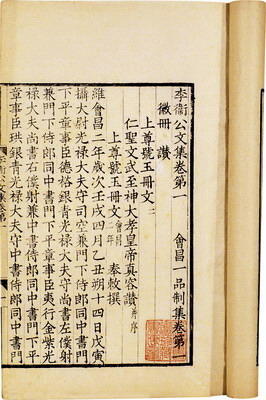 李衛公文集卷第一　會昌一品制集卷第一
徽冊　讚
上尊號玉冊文二
仁聖文武至神大孝皇帝真容讚并序
上尊號玉冊文會昌二年　奉敕撰
維會昌二年歲次壬戌四月乙丑朔十四日戊寅
攝太尉光祿大夫守司空兼門下侍郎同中書門
下平章事臣德裕銀青光祿大夫守尚書左僕射
兼門下侍郎同中書門下平章事臣夷行金紫光
祿大夫尚書右僕射兼中書侍郎同中書門下平
章事臣珙銀青光祿大夫守中書侍郎同中書門